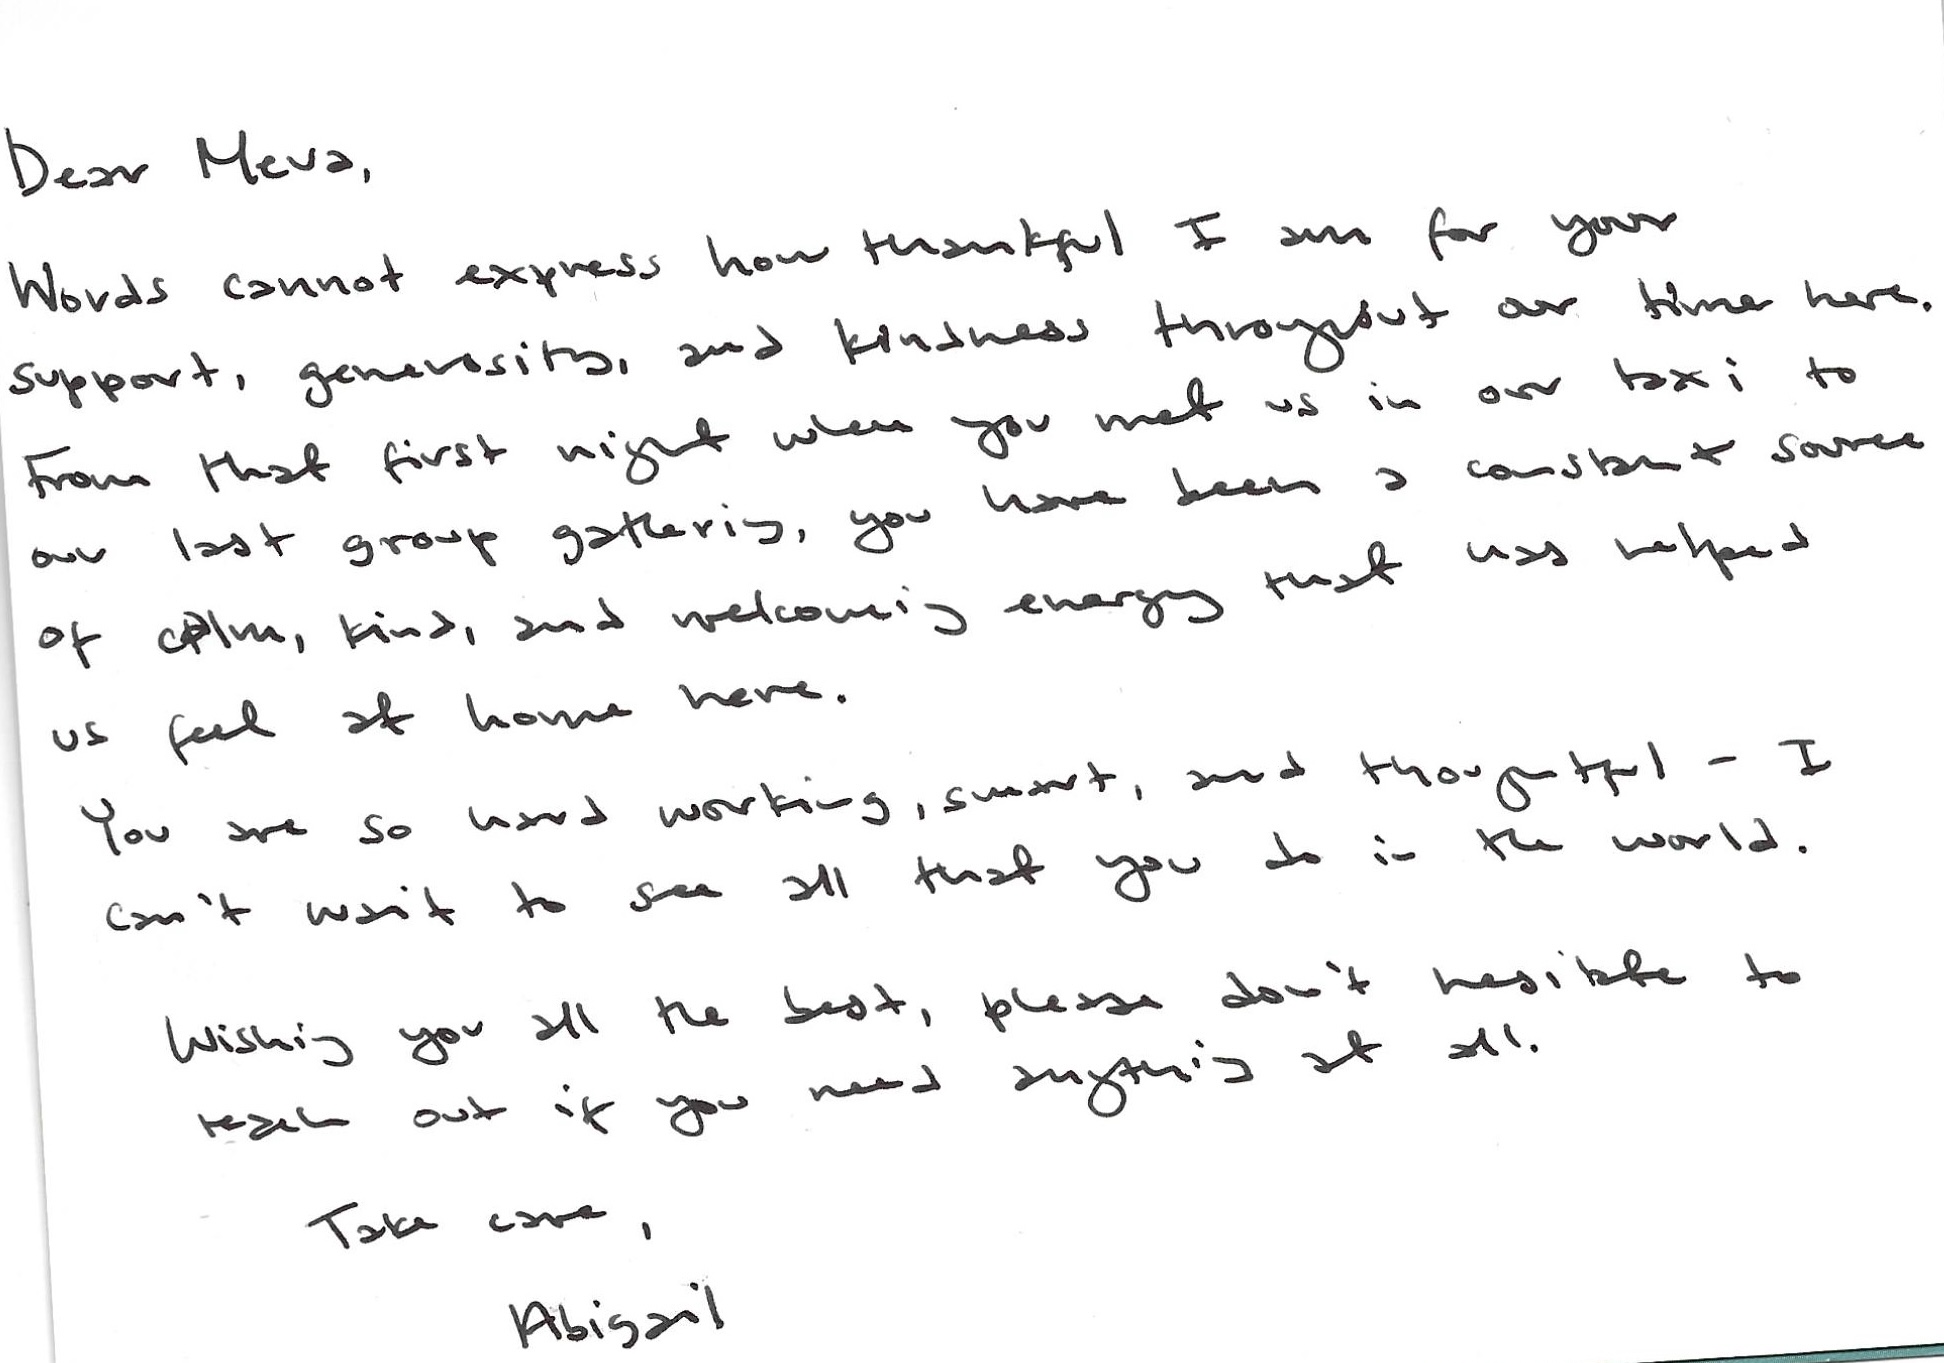 Dear Meva,
Words cannot express how thankful I am for your
support, generosity, and kindness throughout our time here.
From that first night when you met us in our taxi to
our last group gathering, you have been a constant source
of calm, kind, and welcoming energy that has helped
us feel at home here.
You are so hard working, smart, and thoughtful - I
can't wait to see all that you do in the world.
Wishing you all the best, please don't hesitate to
reach out if you need anything at all.
Take care,
Abigail